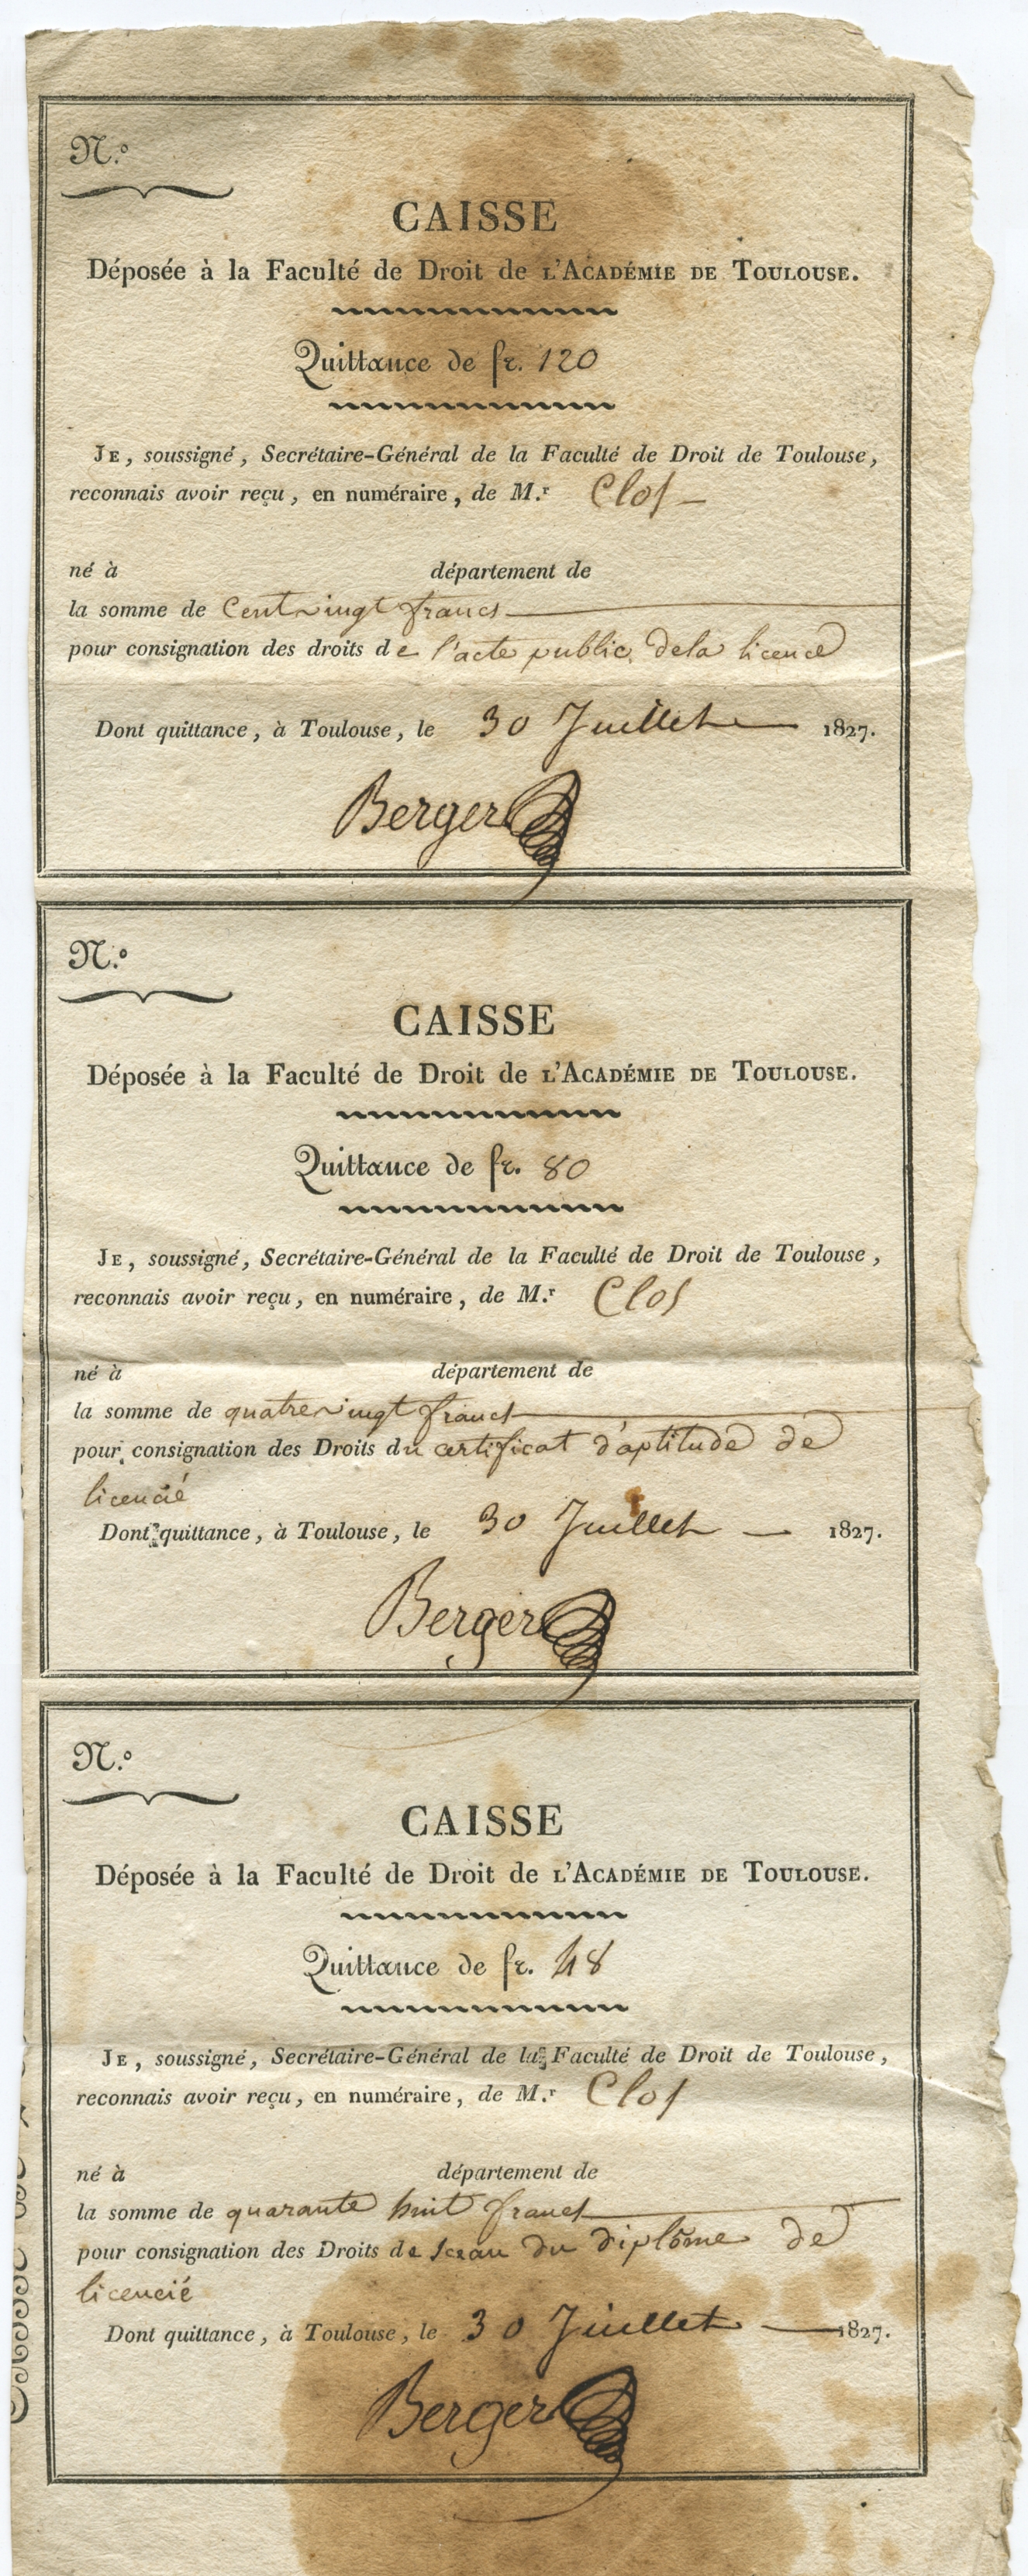 N.º
CAISSE
Déposée à la Faculté de Droit de L'ACADÉMIE DE TOULOUSE.
Quittance de fr. 120
JE, soussigné, Secrétaire-Général de la Faculté de Droit de Toulouse,
reconnais avoir reçu, en numéraire, de M.r Clos
né à département de
la somme de Cent vingt francs
pour consignation des droits de l'acte public de la licence
Dont quittance, à Toulouse, le 30 Juillet 1827.
Berger
N.º
CAISSE
Déposée à la Faculté de Droit de L'ACADÉMIE DE TOULOUSE.
Quittance de fr. 80
JE, soussigné, Secrétaire-Général de la Faculté de Droit de Toulouse,
reconnais avoir reçu, en numéraire, de M.r Clos
né à département de
la somme de quatre vingt francs
pour consignation des Droits du certificat d'aptitude de
licencié
Dont quittance, à Toulouse, le 30 Juillet 1827.
Berger
N.º
CAISSE
Déposée à la Faculté de Droit de L'ACADÉMIE DE TOULOUSE.
Quittance de fr. 48
JE, soussigné, Secrétaire-Général de la Faculté de Droit de Toulouse,
reconnais avoir reçu, en numéraire, de M.r Clos
né à département de
la somme de quarante huit francs
pour consignation des Droits de sceau du diplôme de
licencié
Dont quittance, à Toulouse, le 30 Juillet 1827.
Berger